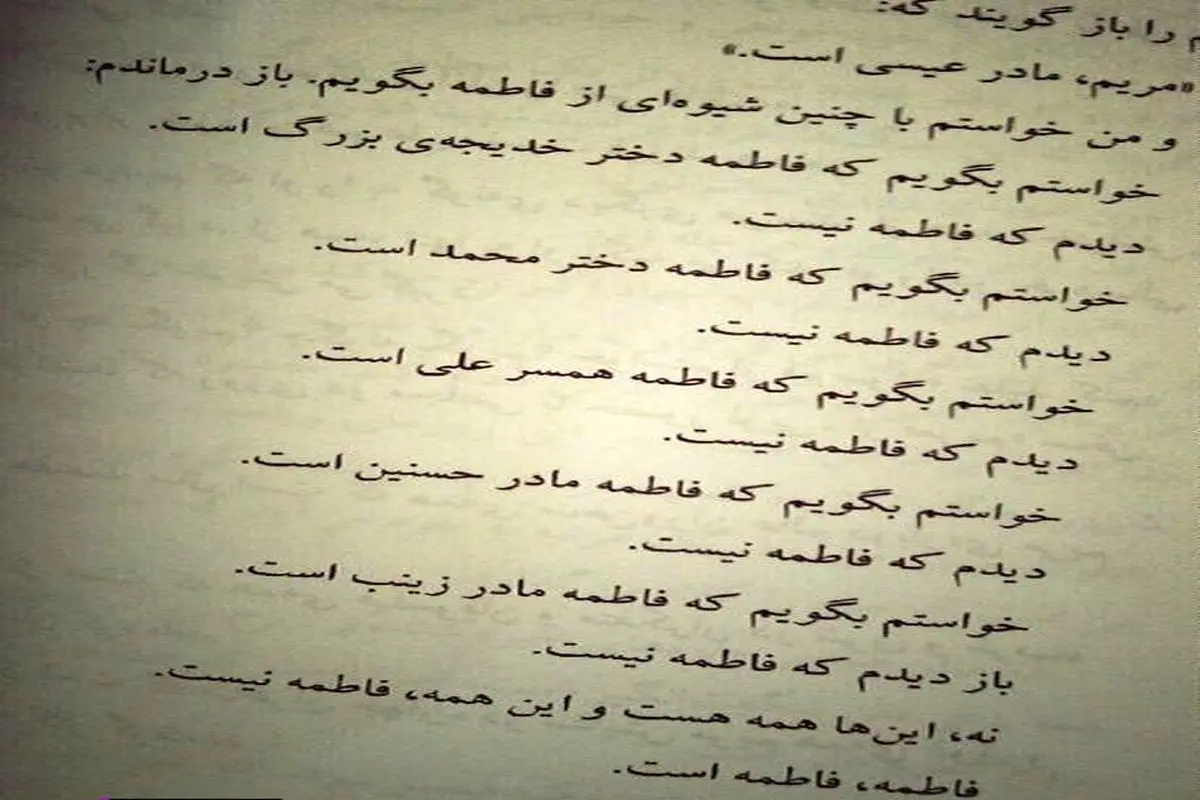 م را باز گویند که:
«مریم، مادر عیسی است.»
و من خواستم با چنین شیوه‌ای از فاطمه بگویم. باز درماندم:
خواستم بگویم که فاطمه دختر خدیجه‌ی بزرگ است.
دیدم که فاطمه نیست.
خواستم بگویم که فاطمه دختر محمد است.
دیدم که فاطمه نیست.
خواستم بگویم که فاطمه همسر علی است.
دیدم که فاطمه نیست.
خواستم بگویم که فاطمه مادر حسنین است.
دیدم که فاطمه نیست.
خواستم بگویم که فاطمه مادر زینب است.
باز دیدم که فاطمه نیست.
نه، این‌ها همه هست و این همه، فاطمه نیست.
فاطمه، فاطمه است.